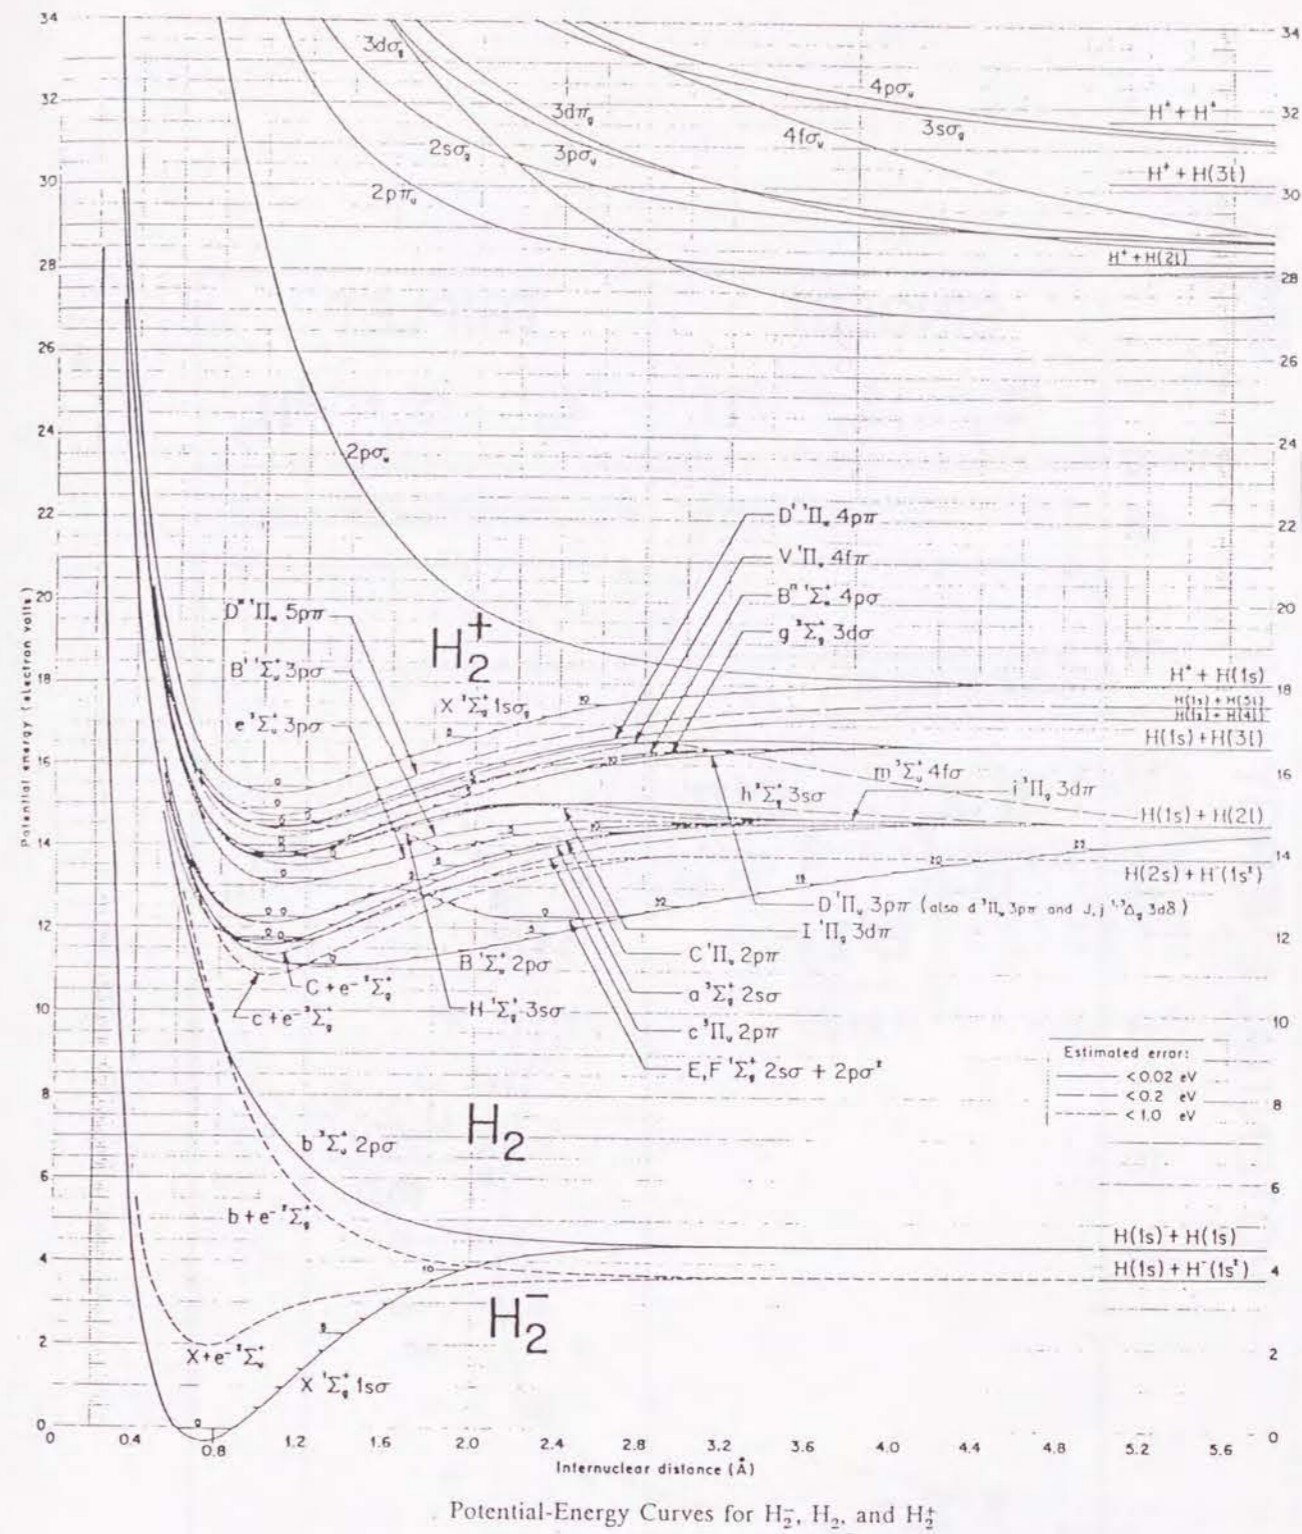 34
32
30
28
26
24
22
20
18
16
14
12
10
8
6
4
2
0
Potential energy (electron volts)
34
32
30
28
26
24
22
20
18
16
14
12
10
8
6
4
2
0
3dσg
3dπg
2sσg
3pσu
2pπu
4pσu
3sσg
4fσu
H⁺ + H⁺
H⁺ + H(3l)
H⁺ + H(2l)
2pσu
D' ¹Πu 4pπ
V ¹Πu 4fπ
B" ¹Σu⁺ 4pσ
g ³Σg⁺ 3dσ
D" ¹Πu 5pπ
H₂⁺
B' ¹Σu⁺ 3pσ
X ²Σg⁺ 1sσg
e ³Σu⁺ 3pσ
H⁺ + H(1s)
H(1s) + H(5l)
H(1s) + H(4l)
H(1s) + H(3l)
m ³Σu⁺ 4fσ
h ³Σg⁺ 3sσ
i ³Πg 3dπ
H(1s) + H(2l)
H(2s) + H⁻(1s²)
D ¹Πu 3pπ (also d ³Πu 3pπ and J, j ¹,³Δg 3dδ)
I ¹Πg 3dπ
B ¹Σu⁺ 2pσ
C ¹Πu 2pπ
C + e⁻ ²Σg⁺
a ³Σg⁺ 2sσ
c + e⁻ ²Σg⁺
H ¹Σg⁺ 3sσ
c ³Πu 2pπ
E,F ¹Σg⁺ 2sσ + 2pσ²
Estimated error:
< 0.02 eV
< 0.2 eV
< 1.0 eV
H₂
b ³Σu⁺ 2pσ
b + e⁻ ²Σg⁺
H(1s) + H(1s)
H(1s) + H⁻(1s²)
H₂⁻
X + e⁻ ²Σu⁺
X ¹Σg⁺ 1sσ
0 0.4 0.8 1.2 1.6 2.0 2.4 2.8 3.2 3.6 4.0 4.4 4.8 5.2 5.6
Internuclear distance (Å)
Potential-Energy Curves for H₂⁻, H₂, and H₂⁺